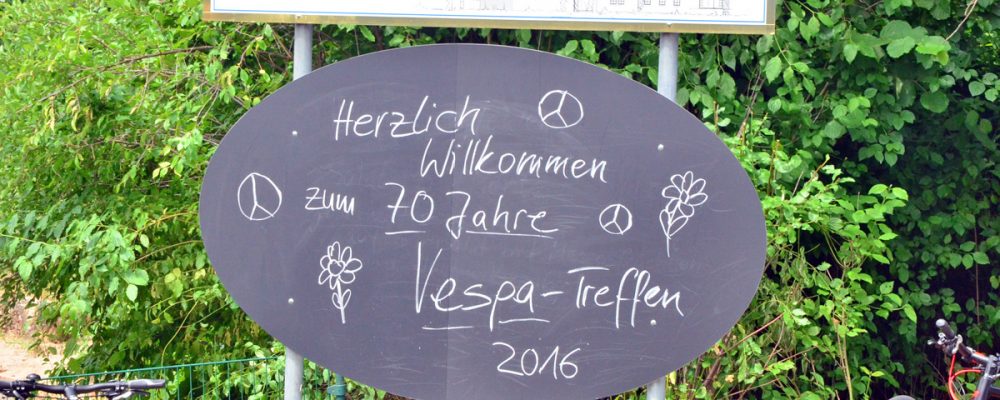 Herzlich
Willkommen
zum 70 Jahre
Vespa-Treffen
2016